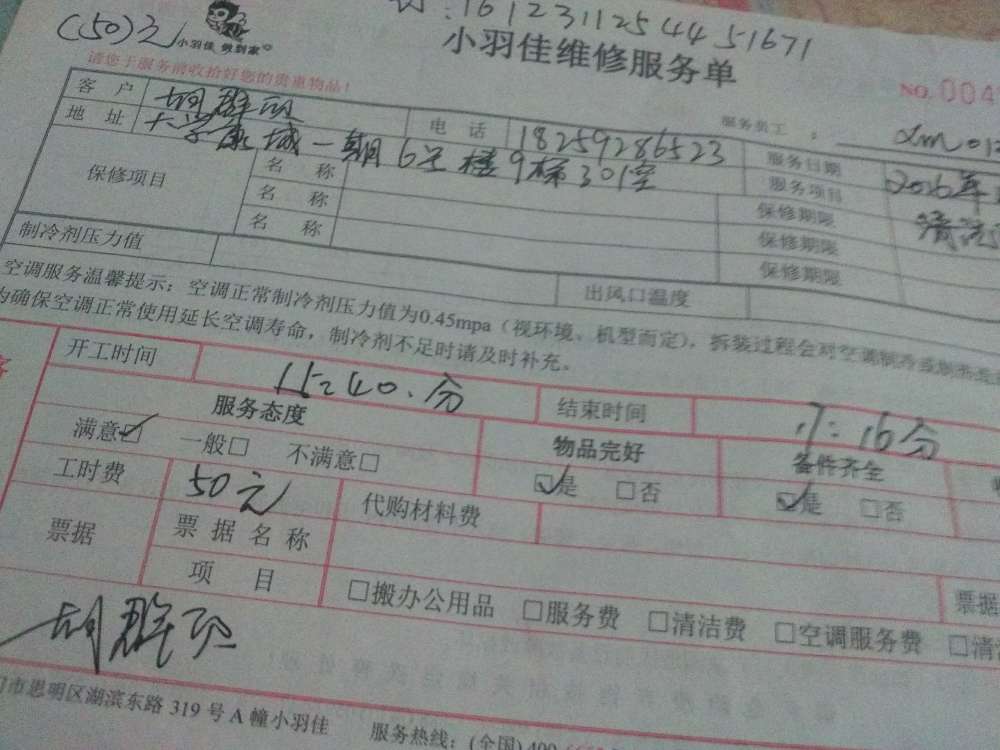 (50)元
:161231125445 1671
小羽佳 做到家
小羽佳维修服务单
请您于服务前收拾好您的贵重物品!
NO. 004
服务员工 : xm01
客 户 胡群 电 话 18259286523 服务日期 2016年
地 址 大学康城一期6号楼9梯301室 服务项目 清洁
保修项目 名 称 保修期限
名 称 保修期限
名 称 保修期限
制冷剂压力值 出风口温度
空调服务温馨提示:空调正常制冷剂压力值为0.45mpa(视环境、机型而定),拆装过程会对空调制冷
为确保空调正常使用延长空调寿命,制冷剂不足时请及时补充。
开工时间 15:40.分 结束时间 17:16分
服务态度 物品完好 备件齐全
满意☑ 一般□ 不满意□ ☑是 □否 ☑是 □否
工时费 50元 代购材料费
票据 票据名称 票据
项 目 □搬办公用品 □服务费 □清洁费 □空调服务费 □清
胡群
门市思明区湖滨东路 319 号 A 幢小羽佳 服务热线:(全国)400